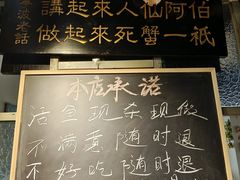 波老話
講起來人仙阿伯
做起來死蟹一祇
本店承诺
活全现杀现做
不满意随时退
不好吃随时退